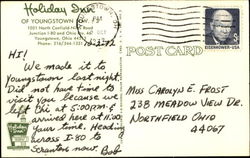 Holiday Inn
OF YOUNGSTOWN
1001 North Canfield-Niles Road
Junction I-80 and Ohio 46
Youngstown, Ohio
PM
OCT
EISENHOWER·USA
POST CARD
HI!
We made it to
Youngstown last night.
Did not have time to
visit you because we
left D.C. at 5:00PM &
arrived here at 11:30
your time. Heading
across I-80 to
Scranton now.
Bob
MISS CAROLYN E. FROST
238 MEADOW VIEW DR.
NORTHFIELD OHIO
44067